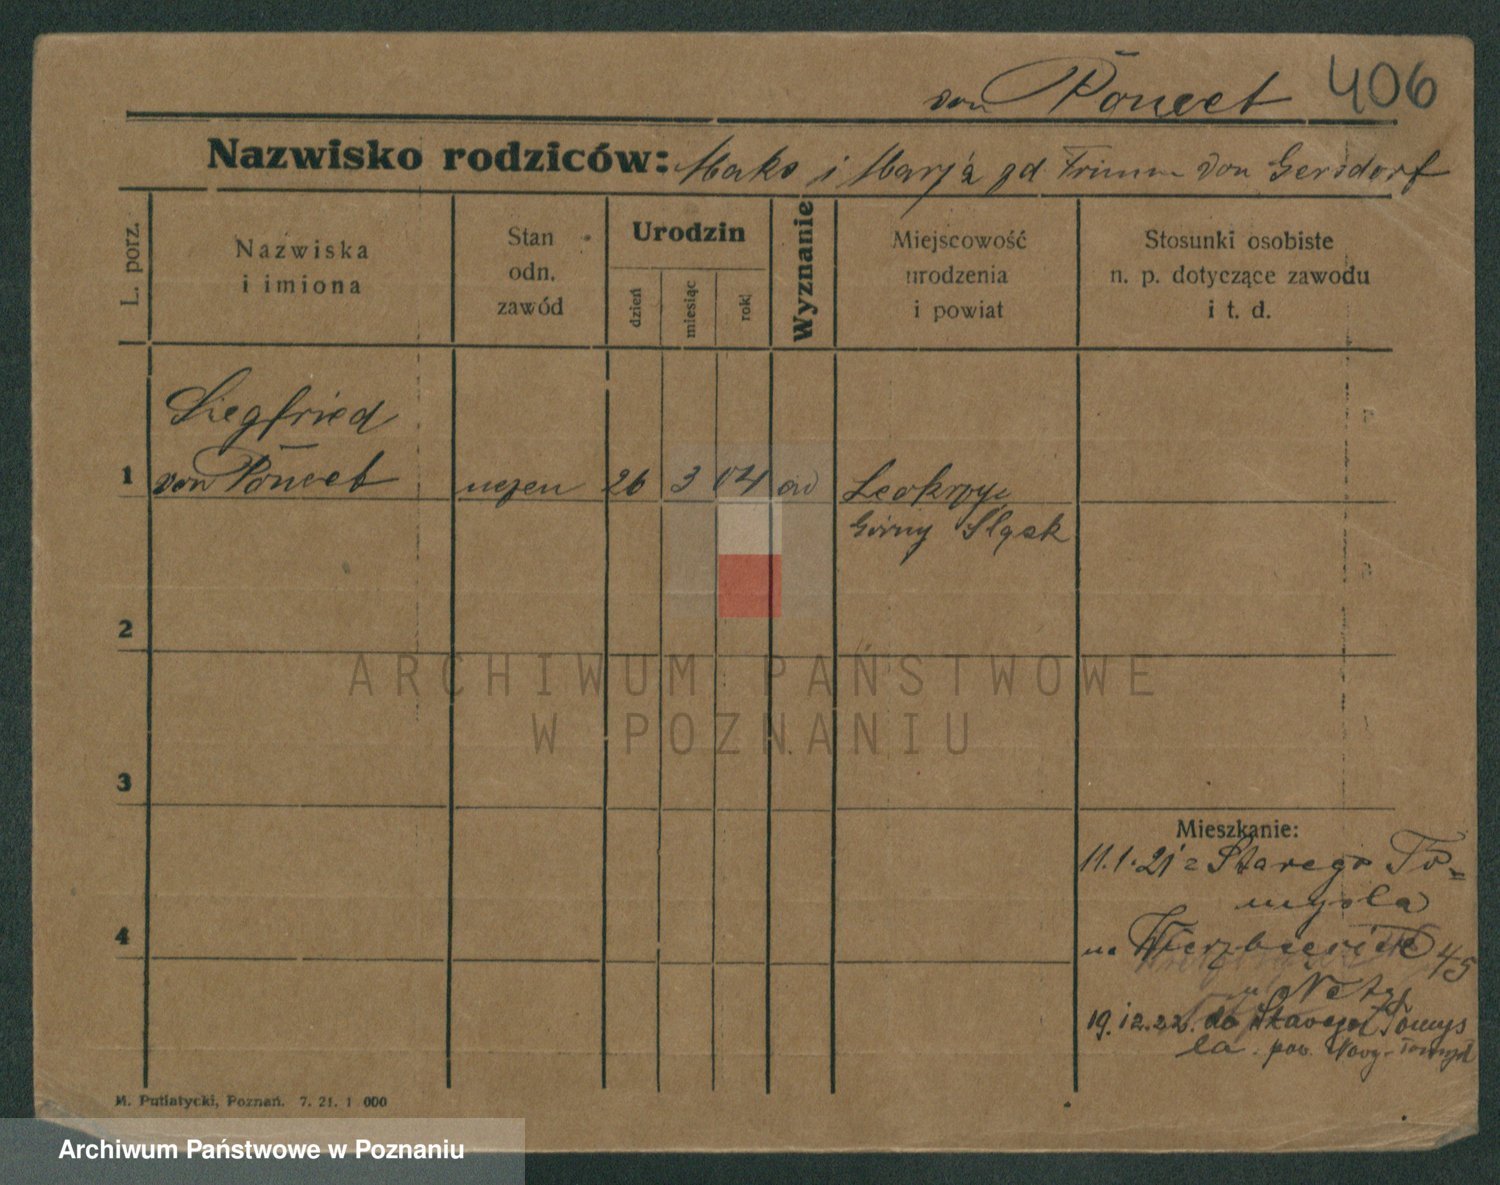 von Poncet 406
Nazwisko rodziców: Maks i Marja von Gersdorf
L. porz.
Nazwiska
i imiona
Stan
odn.
zawód
Urodzin
dzień
miesiąc
rok
Wyznanie
Miejscowość
urodzenia
i powiat
Stosunki osobiste
n. p. dotyczące zawodu
i t. d.
Siegfried
1 von Poncet uczeń 26 3 04 ew
Górny Śląsk
2
3
4
Mieszkanie:
11.1.21 z Starego To=
myśla
na 45
19.12.22. do Starego Tomyś
la. pow. Nowy-Tomyśl
M. Putiatycki, Poznań. 7. 21. 1 000
ARCHIWUM PAŃSTWOWE
W POZNANIU
Archiwum Państwowe w Poznaniu